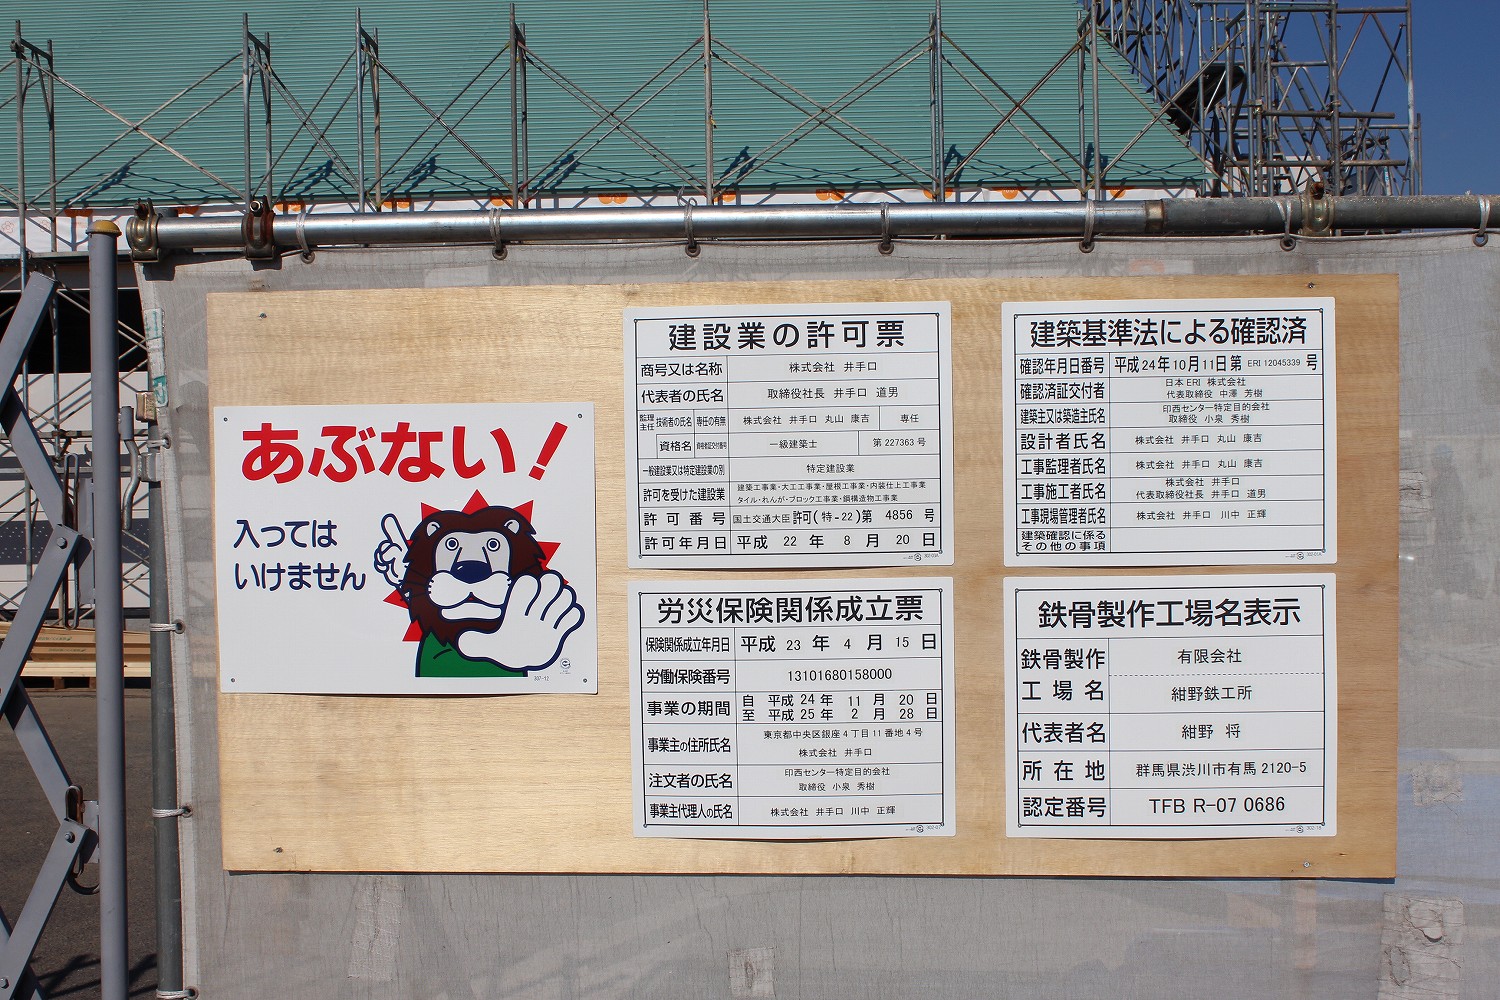 あぶない!
入っては
いけません
307-12
建設業の許可票
商号又は名称 株式会社 井手口
代表者の氏名 取締役社長 井手口 道男
監理主任 技術者の氏名 専任の有無 株式会社 井手口 丸山 康吉 専任
資格名 資格者証交付番号 一級建築士 第 227363 号
一般建設業又は特定建設業の別 特定建設業
許可を受けた建設業 建築工事業・大工工事業・屋根工事業・内装仕上工事業
タイル・れんが・ブロック工事業・鋼構造物工事業
許可番号 国土交通大臣 許可(特-22)第 4856 号
許可年月日 平成 22 年 8 月 20 日
労災保険関係成立票
保険関係成立年月日 平成 23 年 4 月 15 日
労働保険番号 13101680158000
事業の期間 自 平成 24 年 11 月 20 日
至 平成 25 年 2 月 28 日
事業主の住所氏名 東京都中央区銀座4丁目11番地4号
株式会社 井手口
注文者の氏名 印西センター特定目的会社
取締役 小泉 秀樹
事業主代理人の氏名 株式会社 井手口 川中 正輝
302-07
建築基準法による確認済
確認年月日番号 平成 24年 10月 11日 第 ERI 12045339 号
確認済証交付者 日本 ERI 株式会社
代表取締役 中澤 芳樹
建築主又は築造主氏名 印西センター特定目的会社
取締役 小泉 秀樹
設計者氏名 株式会社 井手口 丸山 康吉
工事監理者氏名 株式会社 井手口 丸山 康吉
工事施工者氏名 株式会社 井手口
代表取締役社長 井手口 道男
工事現場管理者氏名 株式会社 井手口 川中 正輝
建築確認に係る
その他の事項
鉄骨製作工場名表示
鉄骨製作 有限会社
工場名 紺野鉄工所
代表者名 紺野 将
所在地 群馬県渋川市有馬 2120-5
認定番号 TFB R-07 0686
302-18